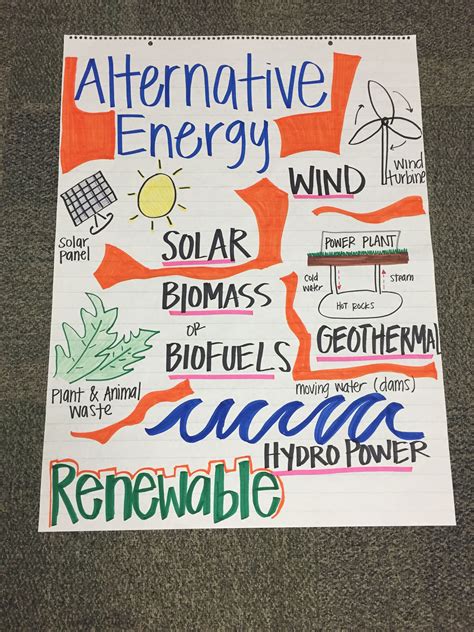 Alternative
Energy
Wind
turbine
WIND
Solar
Panel
SOLAR
POWER PLANT
Cold
water
steam
HOT ROCKS
BIOMASS
or
BIOFUELS
GEOTHERMAL
Plant & Animal
Waste
moving water (dams)
HYDRO POWER
Renewable